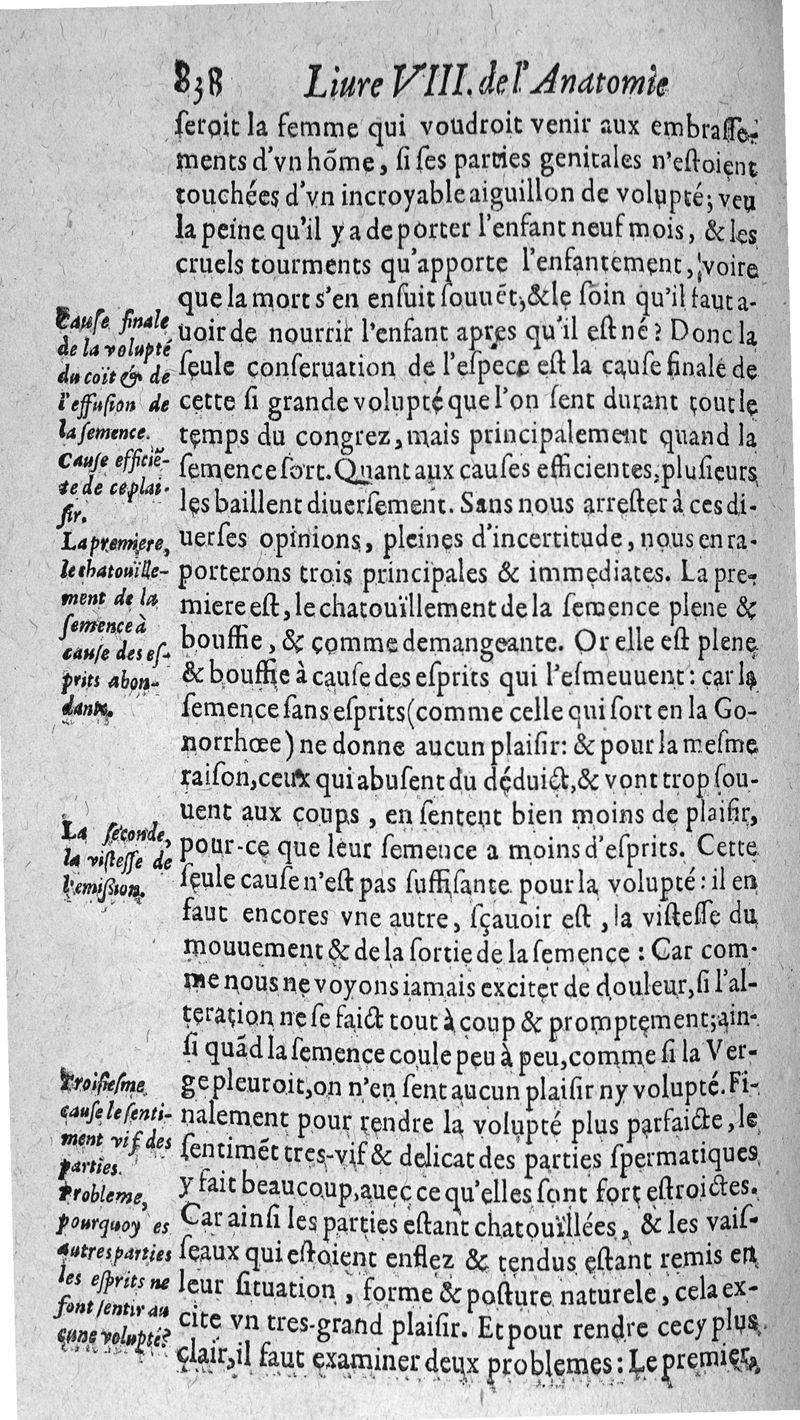 838 Liure VIII. de l'Anatomie
seroit la femme qui voudroit venir aux embrasse-
ments d'vn hõme, si ses parties genitales n'estoient
touchées d'vn incroyable aiguillon de volupté; veu
la peine qu'il y a de porter l'enfant neuf mois, & les
cruels tourments qu'apporte l'enfantement, voire
que la mort s'en ensuit souuẽt, & le soin qu'il faut a-
uoir de nourrir l'enfant apres qu'il est né? Donc la
seule conseruation de l'espece est la cause finale de
cette si grande volupté que l'on sent durant tout le
temps du congrez, mais principalement quand la
semence sort. Quant aux causes efficientes, plusieurs
les baillent diuersement. Sans nous arrester à ces di-
uerses opinions, pleines d'incertitude, nous en ra-
porterons trois principales & immediates. La pre-
miere est, le chatoüillement de la semence plene &
bouffie, & comme demangeante. Or elle est plene
& bouffie à cause des esprits qui l'esmeuuent: car la
semence sans esprits (comme celle qui sort en la Go-
norrhœe) ne donne aucun plaisir: & pour la mesme
raison, ceux qui abusent du déduict, & vont trop sou-
uent aux coups, en sentent bien moins de plaisir,
pour-ce que leur semence a moins d'esprits. Cette
seule cause n'est pas suffisante pour la volupté: il en
faut encores vne autre, sçauoir est, la vistesse du
mouuement & de la sortie de la semence: Car com-
me nous ne voyons iamais exciter de douleur, si l'al-
teration ne se faict tout à coup & promptement; ain-
si quãd la semence coule peu à peu, comme si la Ver-
ge pleuroit, on n'en sent aucun plaisir ny volupté. Fi-
nalement pour rendre la volupté plus parfaicte, le
sentimẽt tres-vif & delicat des parties spermatiques
y fait beaucoup, auec ce qu'elles sont fort estroictes.
Car ainsi les parties estant chatoüillées, & les vais-
seaux qui estoient enflez & tendus estant remis en
leur situation, forme & posture naturele, cela ex-
cite vn tres-grand plaisir. Et pour rendre cecy plus
clair, il faut examiner deux problemes: Le premier,
Cause finale
de la volupté
du coït & de
l'effusion de
la semence.
Cause efficiẽ-
te de ce plai-
sir.
La premiere,
le chatoüille-
ment de la
semence à
cause des es-
prits abon-
dants.
La seconde,
la vistesse de
l'emission.
Troisiesme
cause le senti-
ment vif des
parties.
Probleme,
pourquoy es
autres parties
les esprits ne
font sentir au
cune volupté?